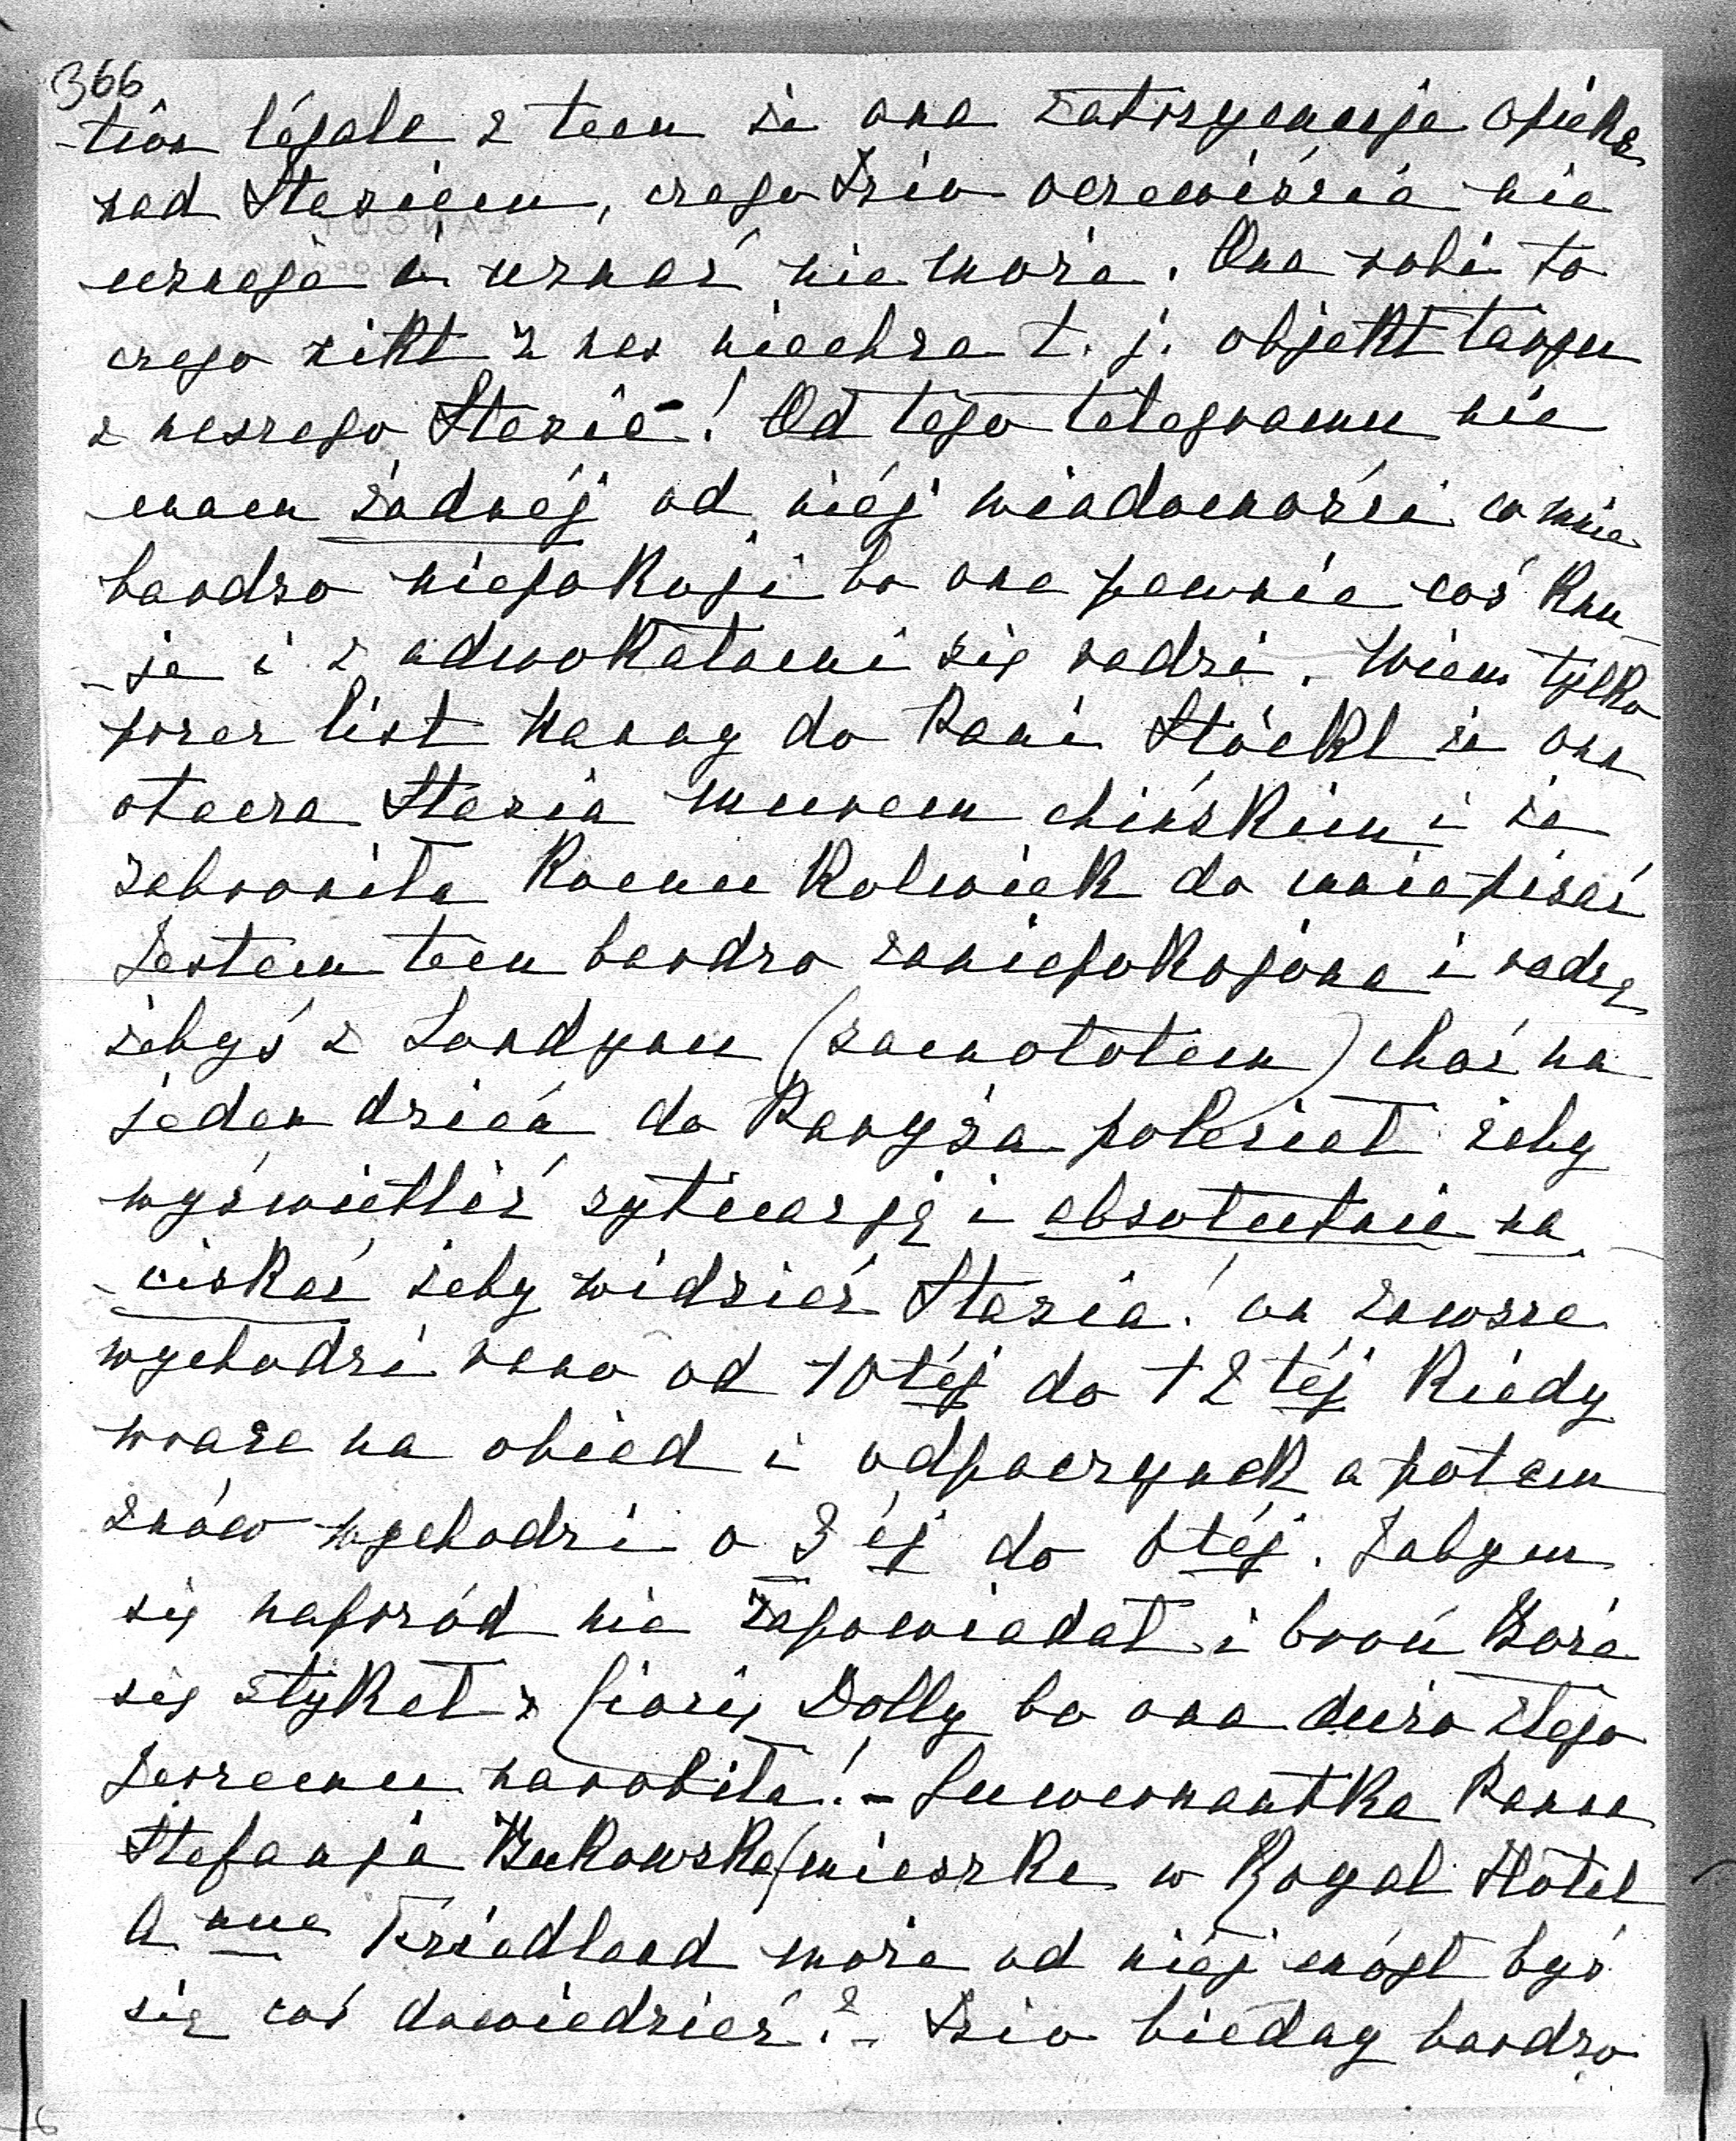 366
-tion légale z tem że ona zatrzymuje opiekę
nad Stasiem, czego Dzio oczewiście nie
uznaje i uznać nie może. Ona robi to
czego nikt z nas niechce t. j. objekt targu
z naszego Stasia! Od tego telegramu nie
mam żadnéj od niéj wiadomości co mnie
bardzo niepokoji bo ona pewnie coś knu-
-je i z adwokatami się radzi. Wiem tylko
przez list Nanny do Pani Stöckl że ona
otacza Stasia murem chińskim i że
zabroniła komu kolwiek do mnie pisać
Jestem tem bardzo zaniepokojona i radzę
żebyś z Londynu (samolotem) choć na
jeden dzień do Paryża poleciał żeby
wyświetlić sytuację i absolutnie na
-ciskać żeby widzieć Stasia! on zawsze
wychodzi rano od 10téj do 12téj kiedy
wraca na obiad i odpoczynek a potem
znów wychodzi o 3éj do 6téj. Żabym
się naprzód nie zapowiadał i broń Boże
się stykał z Dolly bo ona dużo złego
Jurremu narobiła! - Guwernantka Panna
Stefanja Bukowska mieszka w Royal Hôtel
Anue Friedland może od niéj mógł byś
się coś dowiedzieć? - Dzio biedny bardzo